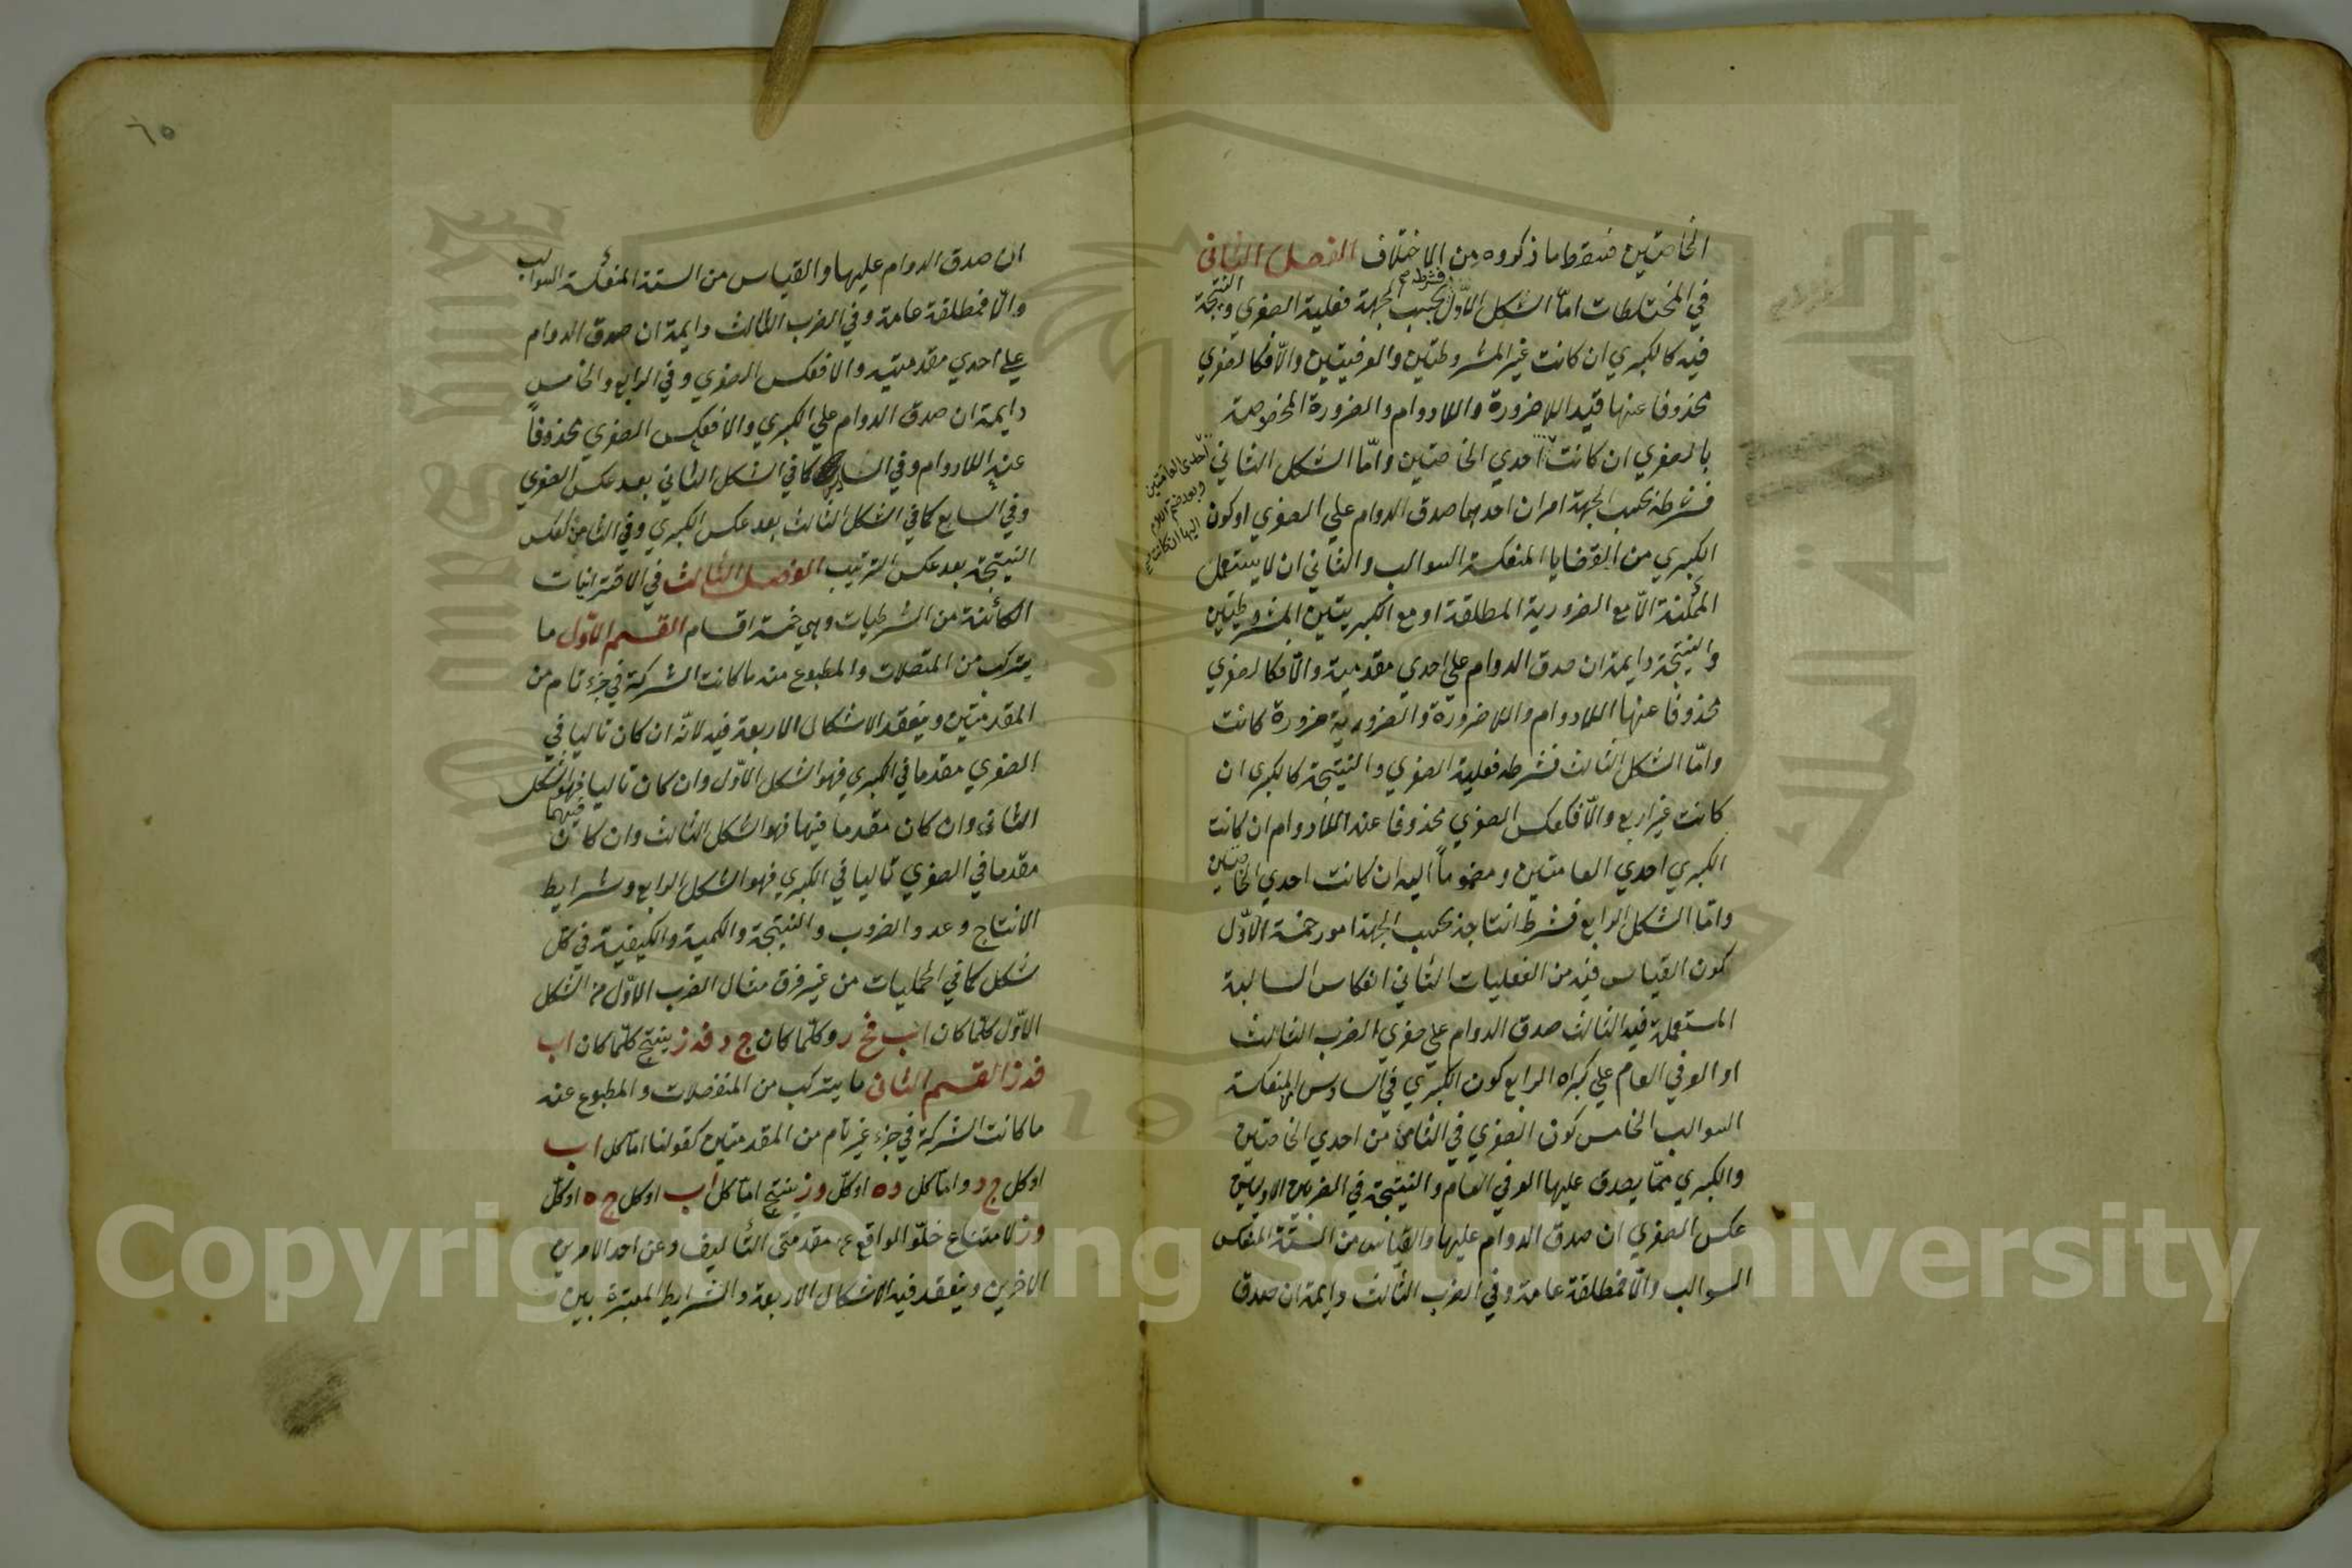 الخاصتين فسقط ما ذكروه من الاختلاف الفصل الثاني
في المختلطات امّا الشكل الاوّل فشرطه بحسب الجهة فعلية الصغرى والنتيجة
فيه كالكبري ان كانت غير المشروطتين والعرفيتين والّا فكالصغري
محذوفا عنها قيد اللاضرورة واللادوام والضرورة المخصوصة
بالصغري ان كانت احدي الخاصتين وامّا الشكل الثاني
احدى العامتين
وبعد ضم اللادوام
اليها ان كانت
فشرطه بحسب الجهة امران احدهما صدق الدوام علي الصغري او كون
الكبري من القضايا المنعكسة السوالب والثاني ان لا يستعمل
الممكنة الّا مع الضرورية المطلقة او مع الكبريتين المشروطتين
والنتيجة دايمة ان صدق الدوام علي احدي مقدميته والّا فكالصغري
محذوفا عنها اللادوام واللاضرورة والضرورية ضرورة كانت
وامّا الشكل الثالث فشرطه فعلية الصغري والنتيجة كالكبري ان
كانت غير اربع والّا فكعكس الصغري محذوفا عنه اللادوام ان كانت
الكبري احدي العامتين ومضموماً اليه ان كانت احدي الخاصتين
وامّا الشكل الرابع فشرط انتاجه بحسب الجهة امور خمسة الاوّل
كون القياس فيه من الفعليات الثاني انعكاس السالبة
المستعملة فيه الثالث صدق الدوام علي صغري الضرب الثالث
او العرفي العام علي كبراه الرابع كون الكبري في السادس من المنعكسة
السوالب الخامس كون الصغري في الثامن من احدي الخاصتين
والكبري ممّا يصدق عليها العرفي العام والنتيجة في الضربين الاوليين
عكس الصغري ان صدق الدوام عليها والقياس من الستة المنعكس
السوالب والّا فمطلقة عامة وفي الضرب الثالث دايمة ان صدق
٦٥
ان صدق الدوام عليها والقياس من الستة المنعكسة السوالب
والّا فمطلقة عامة وفي الضرب الثالث دايمة ان صدق الدوام
علي احدي مقدمتيه والا فعكس الصغري وفي الرابع والخامس
دايمة ان صدق الدوام علي الكبري والا فعكس الصغري محذوفاً
عنه اللادوام وفي السادس كما في الشكل الثاني بعد عكس الصغري
وفي السابع كما في الشكل الثالث بعد عكس الكبري وفي الثامن كعكس
النتيجة بعد عكس الترتيب الفصل الثالث في الاقترانيات
الكائنة من الشرطيات وهي خمسة اقسام القسم الاوّل ما
يتركب من المتصلات والمطبوع منه ما كانت الشركة في جزء تام من
المقدمتين وينعقد الاشكال الاربعة فيه لانّه ان كان تاليا في
الصغري مقدما في الكبري فهو الشكل الاوّل وان كان تاليا فيهما فهو الشكل
الثاني وان كان مقدما فيها فهو الشكل الثالث وان كان
مقدما في الصغري تاليا في الكبري فهو الشكل الرابع وشرايط
الانتاج وعدد الضروب والنتيجة والكمية والكيفية في كل
شكل كما في الحمليات من غير فرق مثال الضرب الاوّل من الشكل
الاوّل كلّما كان اب فج د وكلّما كان ج د فه ز ينتج كلّما كان اب
فه ز القسم الثاني ما يتركب من المنفصلات والمطبوع عنه
ما كانت الشركة في جزء غير تام من المقدمتين كقولنا امّا كل اب
او كل ج د وامّا كل ده او كلّ وز ينتج امّا كلّ اب او كل ج ه او كلّ
وز لامتناع خلّو الواقع عن مقدمتى التأليف وعن احد الامرين
الاخرين وينعقد فيه الاشكال الاربعة والشرايط المعتبرة بين
Copyright © King Saud University